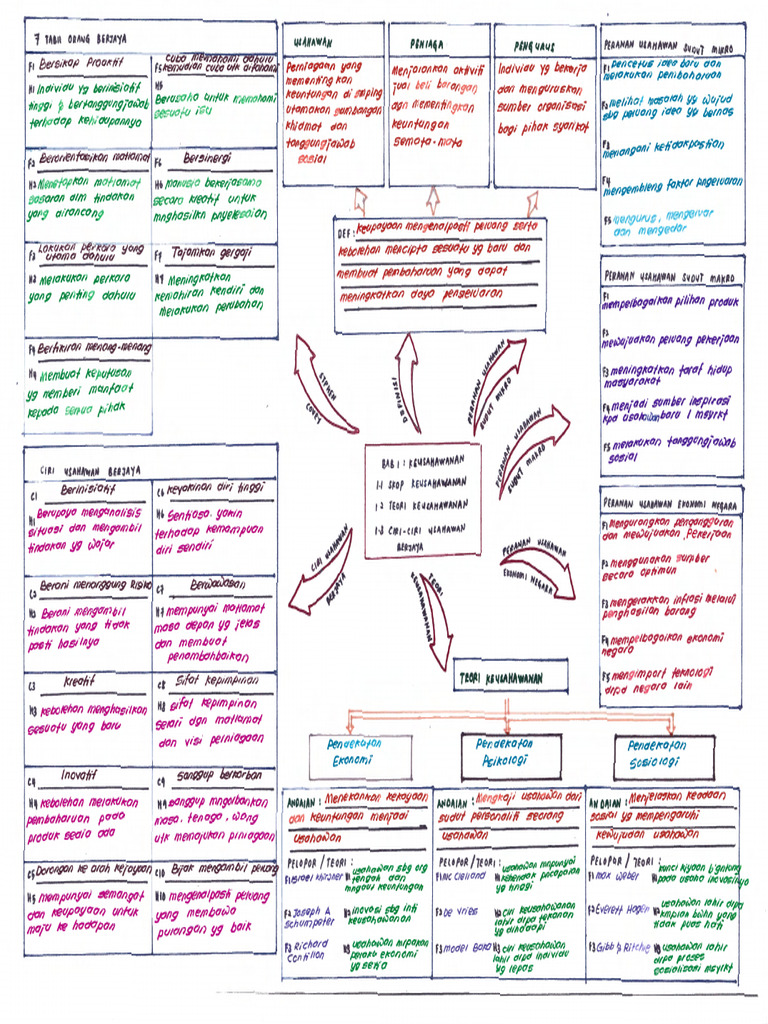 7 TABII ORANG BERJAYA
F1 Bersikap Proaktif
H1 Individu yg berinisiatif
tinggi & bertanggungjawab
terhadap kehidupannya
F5 Cuba memahami dahulu
kemudian cuba utk difahami
H5
Berusaha untuk memahami
sesuatu isu
F2 Berorientasikan matlamat
H2 Menetapkan matlamat
sasaran dlm tindakan
yang dirancang
F6 Bersinergi
H6 manusia bekerjasama
secara kreatif untuk
mnghasilkn pnyelesaian
F3 Lakukan perkara yang
utama dahulu
H3 Melakukan perkara
yang penting dahulu
F7 Tajamkan gergaji
H7 Meningkatkan
kemahiran kendiri dan
melakukan perubahan
F4 Berfikiran menang-menang
H4 Membuat keputusan
yg memberi manfaat
kepada semua pihak
USAHAWAN
Perniagaan yang
mementingkan
keuntungan di samping
utamakan sumbangan
khidmat dan
tanggungjawab
sosial
PENIAGA
Menjalankan aktiviti
jual beli barangan
dgn mementingkan
keuntungan
semata-mata
PENGURUS
Individu yg bekerja
dan menguruskan
sumber organisasi
bagi pihak syarikat
DEF: keupayaan mengenalpasti peluang serta
kebolehan mencipta sesuatu yg baru dan
membuat pembaharuan yang dapat
meningkatkan daya pengeluaran
PERANAN USAHAWAN SUDUT MIKRO
F1 pencetus idea baru dan
melakukan pembaharuan
F2 melihat masalah yg wujud
sbg peluang idea yg bernas
F3
menangani ketidakpastian
F4
mengembleng faktor pngeluaran
F5 mengurus, mengeluar
dan mengedar
PERANAN USAHAWAN SUDUT MAKRO
F1
mempelbagaikan pilihan produk
F2
mewujudkan peluang pekerjaan
F3 meningkatkan taraf hidup
masyarakat
F4 menjadi sumber inspirasi
kpd usahawan baru / msyrkt
F5 melakukan tanggungjawab
sosial
PERANAN USAHAWAN EKONOMI NEGARA
F1 mengurangkan pengangguran
dan mewujudkan pekerjaan
F2 menggunakan sumber
secara optimun
F3 mengerakkan inflasi melalui
penghasilan barang
F4 mempelbagaikan ekonomi
negara
F5 mengimport teknologi
drpd negara lain
STEPHEN
COVEY
DEFINISI
PERANAN USAHAWAN
SUDUT MIKRO
PERANAN USAHAWAN
SUDUT MAKRO
BAB 1 : KEUSAHAWANAN
1.1 SKOP KEUSAHAWANAN
1.2 TEORI KEUSAHAWANAN
1.3 CIRI-CIRI USAHAWAN
BERJAYA
CIRI USAHAWAN
BERJAYA
TEORI
KEUSAHAWANAN
PERANAN USAHAWAN
EKONOMI NEGARA
CIRI USAHAWAN BERJAYA
C1 Berinisiatif
H1 Berupaya menganalisis
situasi dan mengambil
tindakan yg wajar
C6 Keyakinan diri tinggi
H6 Sentiasa yakin
terhadap kemampuan
diri sendiri
C2 Berani menanggung Risiko
H2 Berani mengambil
tindakan yang tidak
pasti hasilnya
C7 Berwawasan
H7 mempunyai matlamat
masa depan yg jelas
dan membuat
penambahbaikan
C3 Kreatif
H3 kebolehan menghasilkan
sesuatu yang baru
C8 Sifat kepimpinan
H8 sifat kepimpinan
selari dgn matlamat
dan visi perniagaan
C4 Inovatif
H4 kebolehan melakukan
pembaharuan pada
produk sedia ada
C9 Sanggup berkorban
H9 sanggup mngorbankan
masa, tenaga, wang
utk memajukan piniagaan
C5 Dorongan ke arah kejayaan
H5 mempunyai semangat
dan keupayaan untuk
maju ke hadapan
C10 Bijak mengambil peluang
H10 mengenalpasti peluang
yang membawa
pulangan yg baik
TEORI KEUSAHAWANAN
Pendekatan
Ekonomi
Pendekatan
Psikologi
Pendekatan
Sosiologi
ANDAIAN : Menekankan kekayaan
dan keuntungan menjadi
usahawan
PELOPOR / TEORI :
F1 Israel Khirzner
H1 usahawan sbg org
tengah dan
mngaut keuntungan
F2 Joseph A
Schumpeter
H2 Inovasi sbg inti
keusahawanan
F3 Richard
Cantilon
H3 usahawan mrpakan
pelaku ekonomi
yg setia
ANDAIAN : Mengkaji usahawan dari
sudut personaliti seorang
usahawan
PELOPOR / TEORI :
F1 Mc Clelland
H1 usahawan mmpunyai
kehendak pncapaian
yg tinggi
F2 De Vries
H2 Ciri keusahawanan
lahir drpa tekanan
yg dihadapi
F3 Model Bakd
H3 Ciri keusahawanan
lahir drpa individu
yg lepas
ANDAIAN : Menjelaskan keadaan
sosial yg mempengaruhi
kewujudan usahawan
PELOPOR / TEORI :
F1 max weber
H1 kunci kjyaan b'gntung
pada usaha inovasinya
F2 Everett Hagen
H2 usahawan lahir drpa
kmpln bwhn yang
tidak puas hati
F3 Gibb & Ritchie
H3 usahawan lahir
drpa proses
sosialisasi msyrkt